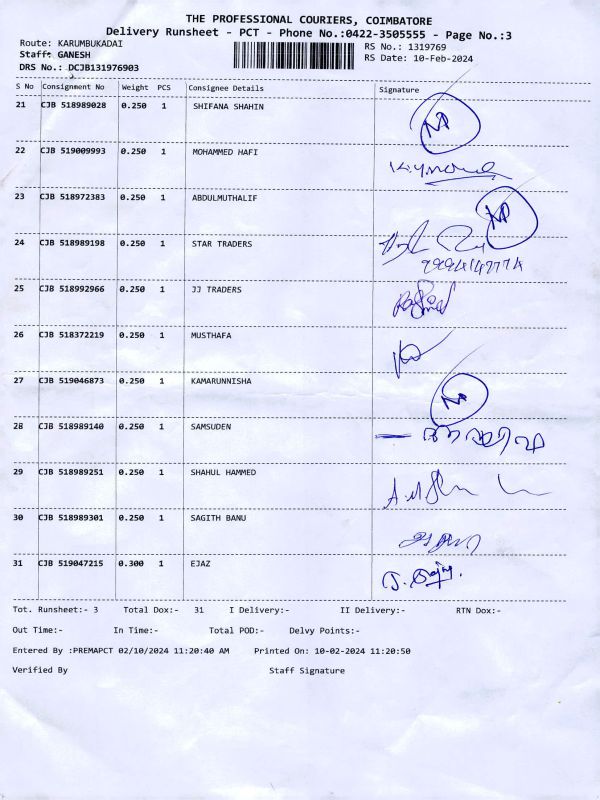 THE PROFESSIONAL COURIERS, COIMBATORE
Delivery Runsheet - PCT - Phone No.:0422-3505555 - Page No.:3
Route: KARUMBUKADAI RS No.: 1319769
Staff: GANESH RS Date: 10-Feb-2024
DRS No.: DCJB131976903
S No Consignment No Weight PCS Consignee Details Signature
21 CJB 518989028 0.250 1 SHIFANA SHAHIN
22 CJB 519009993 0.250 1 MOHAMMED HAFI
23 CJB 518972383 0.250 1 ABDULMUTHALIF
24 CJB 518989198 0.250 1 STAR TRADERS
25 CJB 518992966 0.250 1 JJ TRADERS
26 CJB 518372219 0.250 1 MUSTHAFA
27 CJB 519046873 0.250 1 KAMARUNNISHA
28 CJB 518989140 0.250 1 SAMSUDEN
29 CJB 518989251 0.250 1 SHAHUL HAMMED
30 CJB 518989301 0.250 1 SAGITH BANU
31 CJB 519047215 0.300 1 EJAZ
Tot. Runsheet:- 3 Total Dox:- 31 I Delivery:- II Delivery:- RTN Dox:-
Out Time:- In Time:- Total POD:- Delvy Points:-
Entered By :PREMAPCT 02/10/2024 11:20:40 AM Printed On: 10-02-2024 11:20:50
Verified By Staff Signature